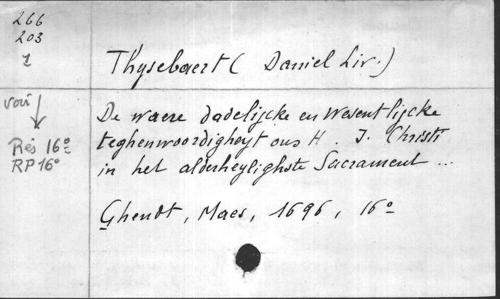 266
203
1
Thysebaert ( Daniel Liv.)
voir
↓
Rés 16º
RP 16º
De waere dadelijcke en wesentlijcke
teghenwoordigheyt ons H. J. Christi
in het alderheylighste Sacrament ...
Ghendt, Maes, 1696, 16º